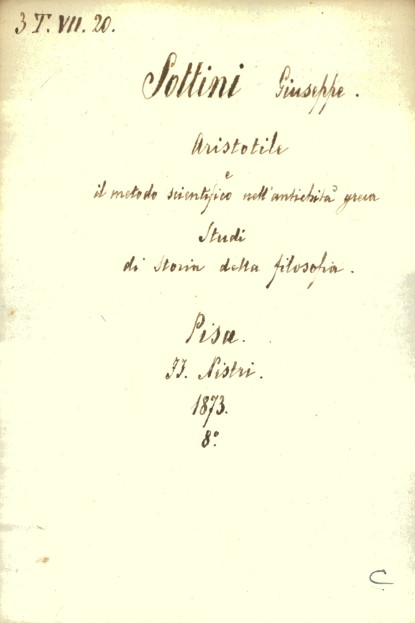 3 T. VII. 20.
Sottini Giuseppe.
Aristotile
e
il metodo scientifico nell'antichità greca
Studi
di Storia della filosofia.
Pisa.
Nistri.
1873.
8°.
C